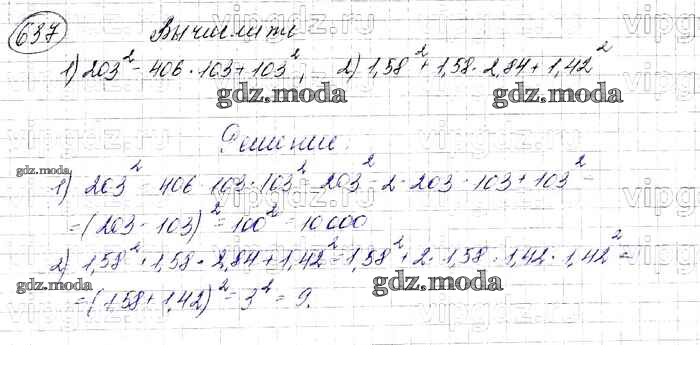 637 Вычислите
1) 203² - 406 · 103 + 103²; 2) 1,58² + 1,58 · 2,84 + 1,42²
gdz.moda gdz.moda
Решение.
gdz.moda
1) 203² - 406 · 103 · 103² = 203² - 2 · 203 · 103 + 103² =
= (203 - 103)² = 100² = 10000
2) 1,58² + 1,58 · 2,84 + 1,42² = 1,58² + 2 · 1,58 · 1,42 · 1,42² =
gdz.moda gdz.moda
= (1,58 + 1,42)² = 3² = 9.